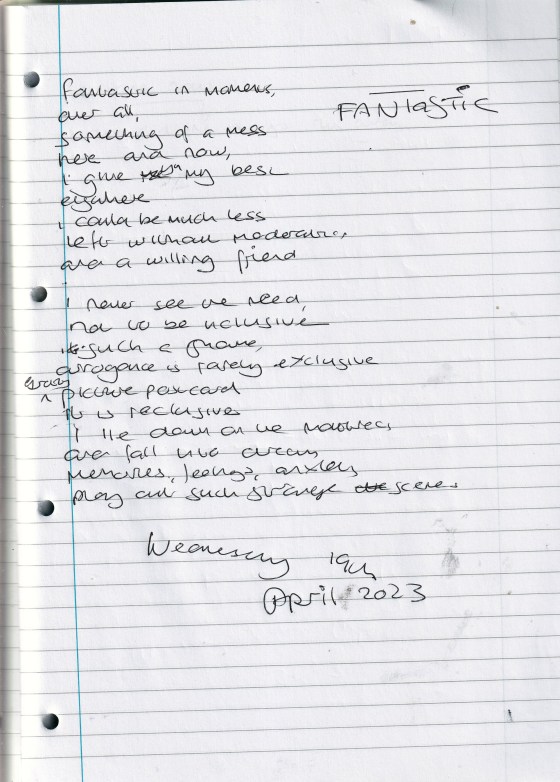 FANTASTIC
fantastic in moments,
over all,
something of a mess
here and now,
i give my best
elsewhere
i could be much less
left without moderation,
and a willing friend
i never see the need,
not to be inclusive
such a phone,
arrogance is rarely exclusive
every picture postcard
it is reclusives
i lie down on the mattress
and fall into dream
memories, feelings, anxiety
play out such strange scenes
Wednesday 19th
April 2023